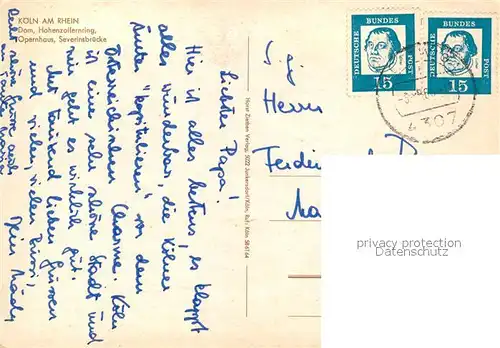 KÖLN AM RHEIN
Dom, Hohenzollernring,
Opernhaus, Severinsbrücke
Liebster Papa!
Hier ist alles bestens, es klappt
alles wunderbar, die Kölner
"kapitulieren" vor dem
österreichischen Charme. Köln
ist eine sehr schöne Stadt und
mir geht es wirklich gut.
Mit tausend lieben Grüssen
und vielen, vielen Bussi,
Dein
Horst Ziethen Verlag, 5022 Junkersdorf/Köln, Ruf: Köln 58 67 64
DEUTSCHE BUNDES POST
15
DEUTSCHE BUNDES POST
15
4307
Herrn
privacy protection
Datenschutz